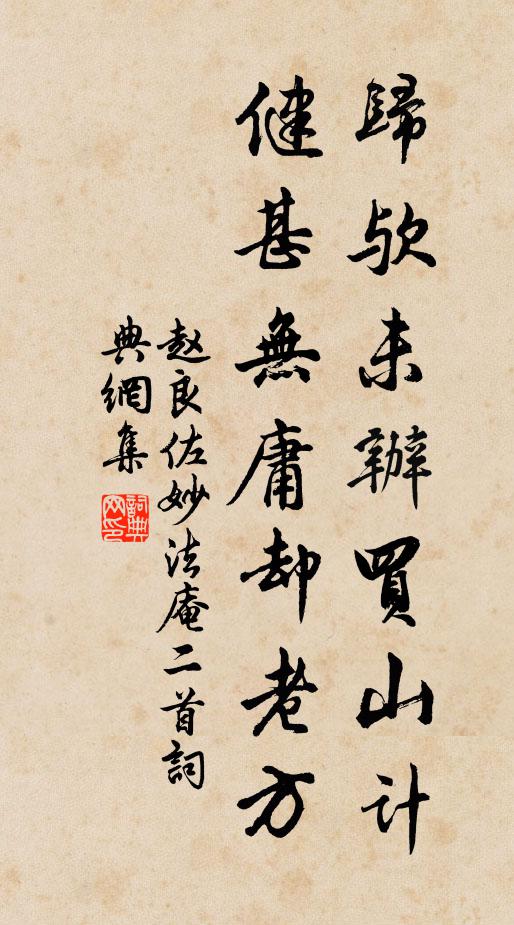 歸歟未辦買山計
健甚無庸却老方
赵良佐妙法庵二首詞
典網集
詞典网印